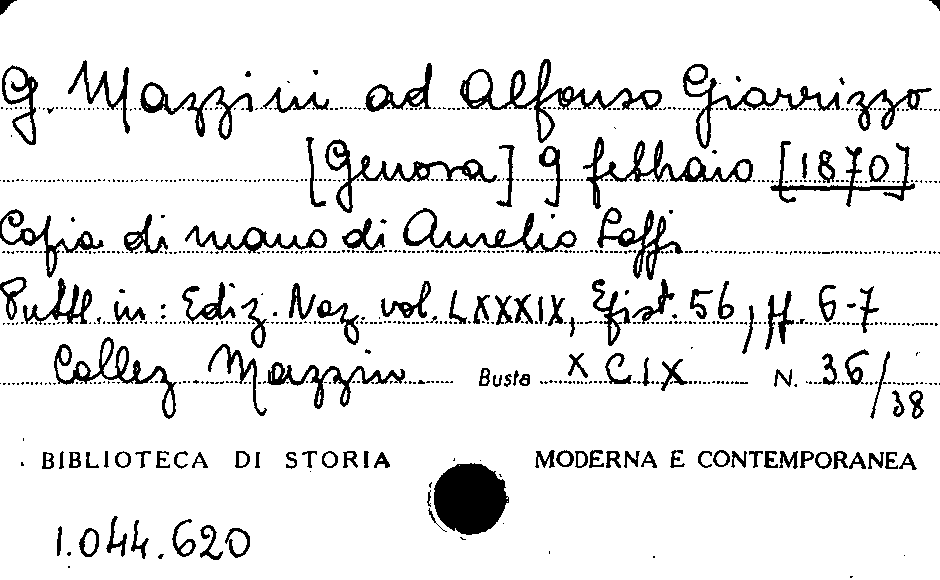 G. Mazzini ad Alfonso Giarrizzo
[Genova] 9 febbraio [1870]
Copia di mano di Aurelio Saffi
Pubbl. in: Ediz. Naz. vol. LXXXIX, Epist. 56, pp. 6-7
Collez. Mazzini. Busta XCIX N. 36/38
BIBLIOTECA DI STORIA MODERNA E CONTEMPORANEA
1.044.620